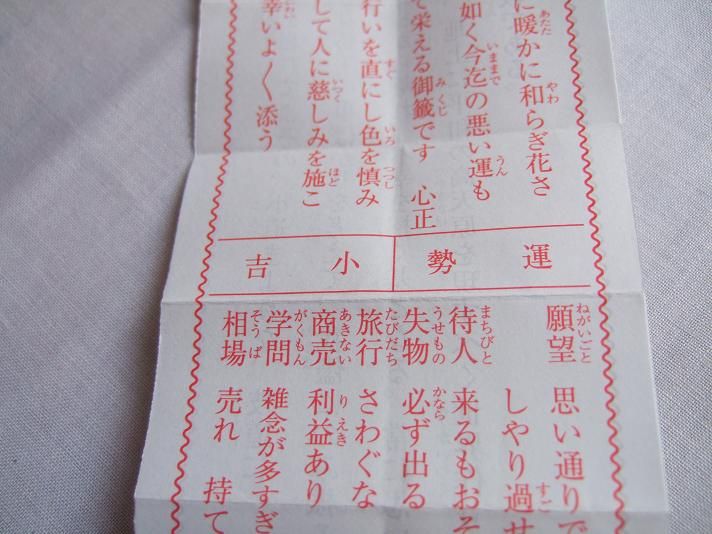 に暖かに和らぎ花さ
如く今迄の悪い運も
て栄える御籤です 心正
行いを直にし色を慎み
して人に慈しみを施こ
幸いよく添う
運勢
小吉
願望 思い通りで
しやり過せ
待人 来るもおそ
失物 必ず出る
旅行 さわぐな
商売 利益あり
学問 雑念が多すぎ
相場 売れ 持て